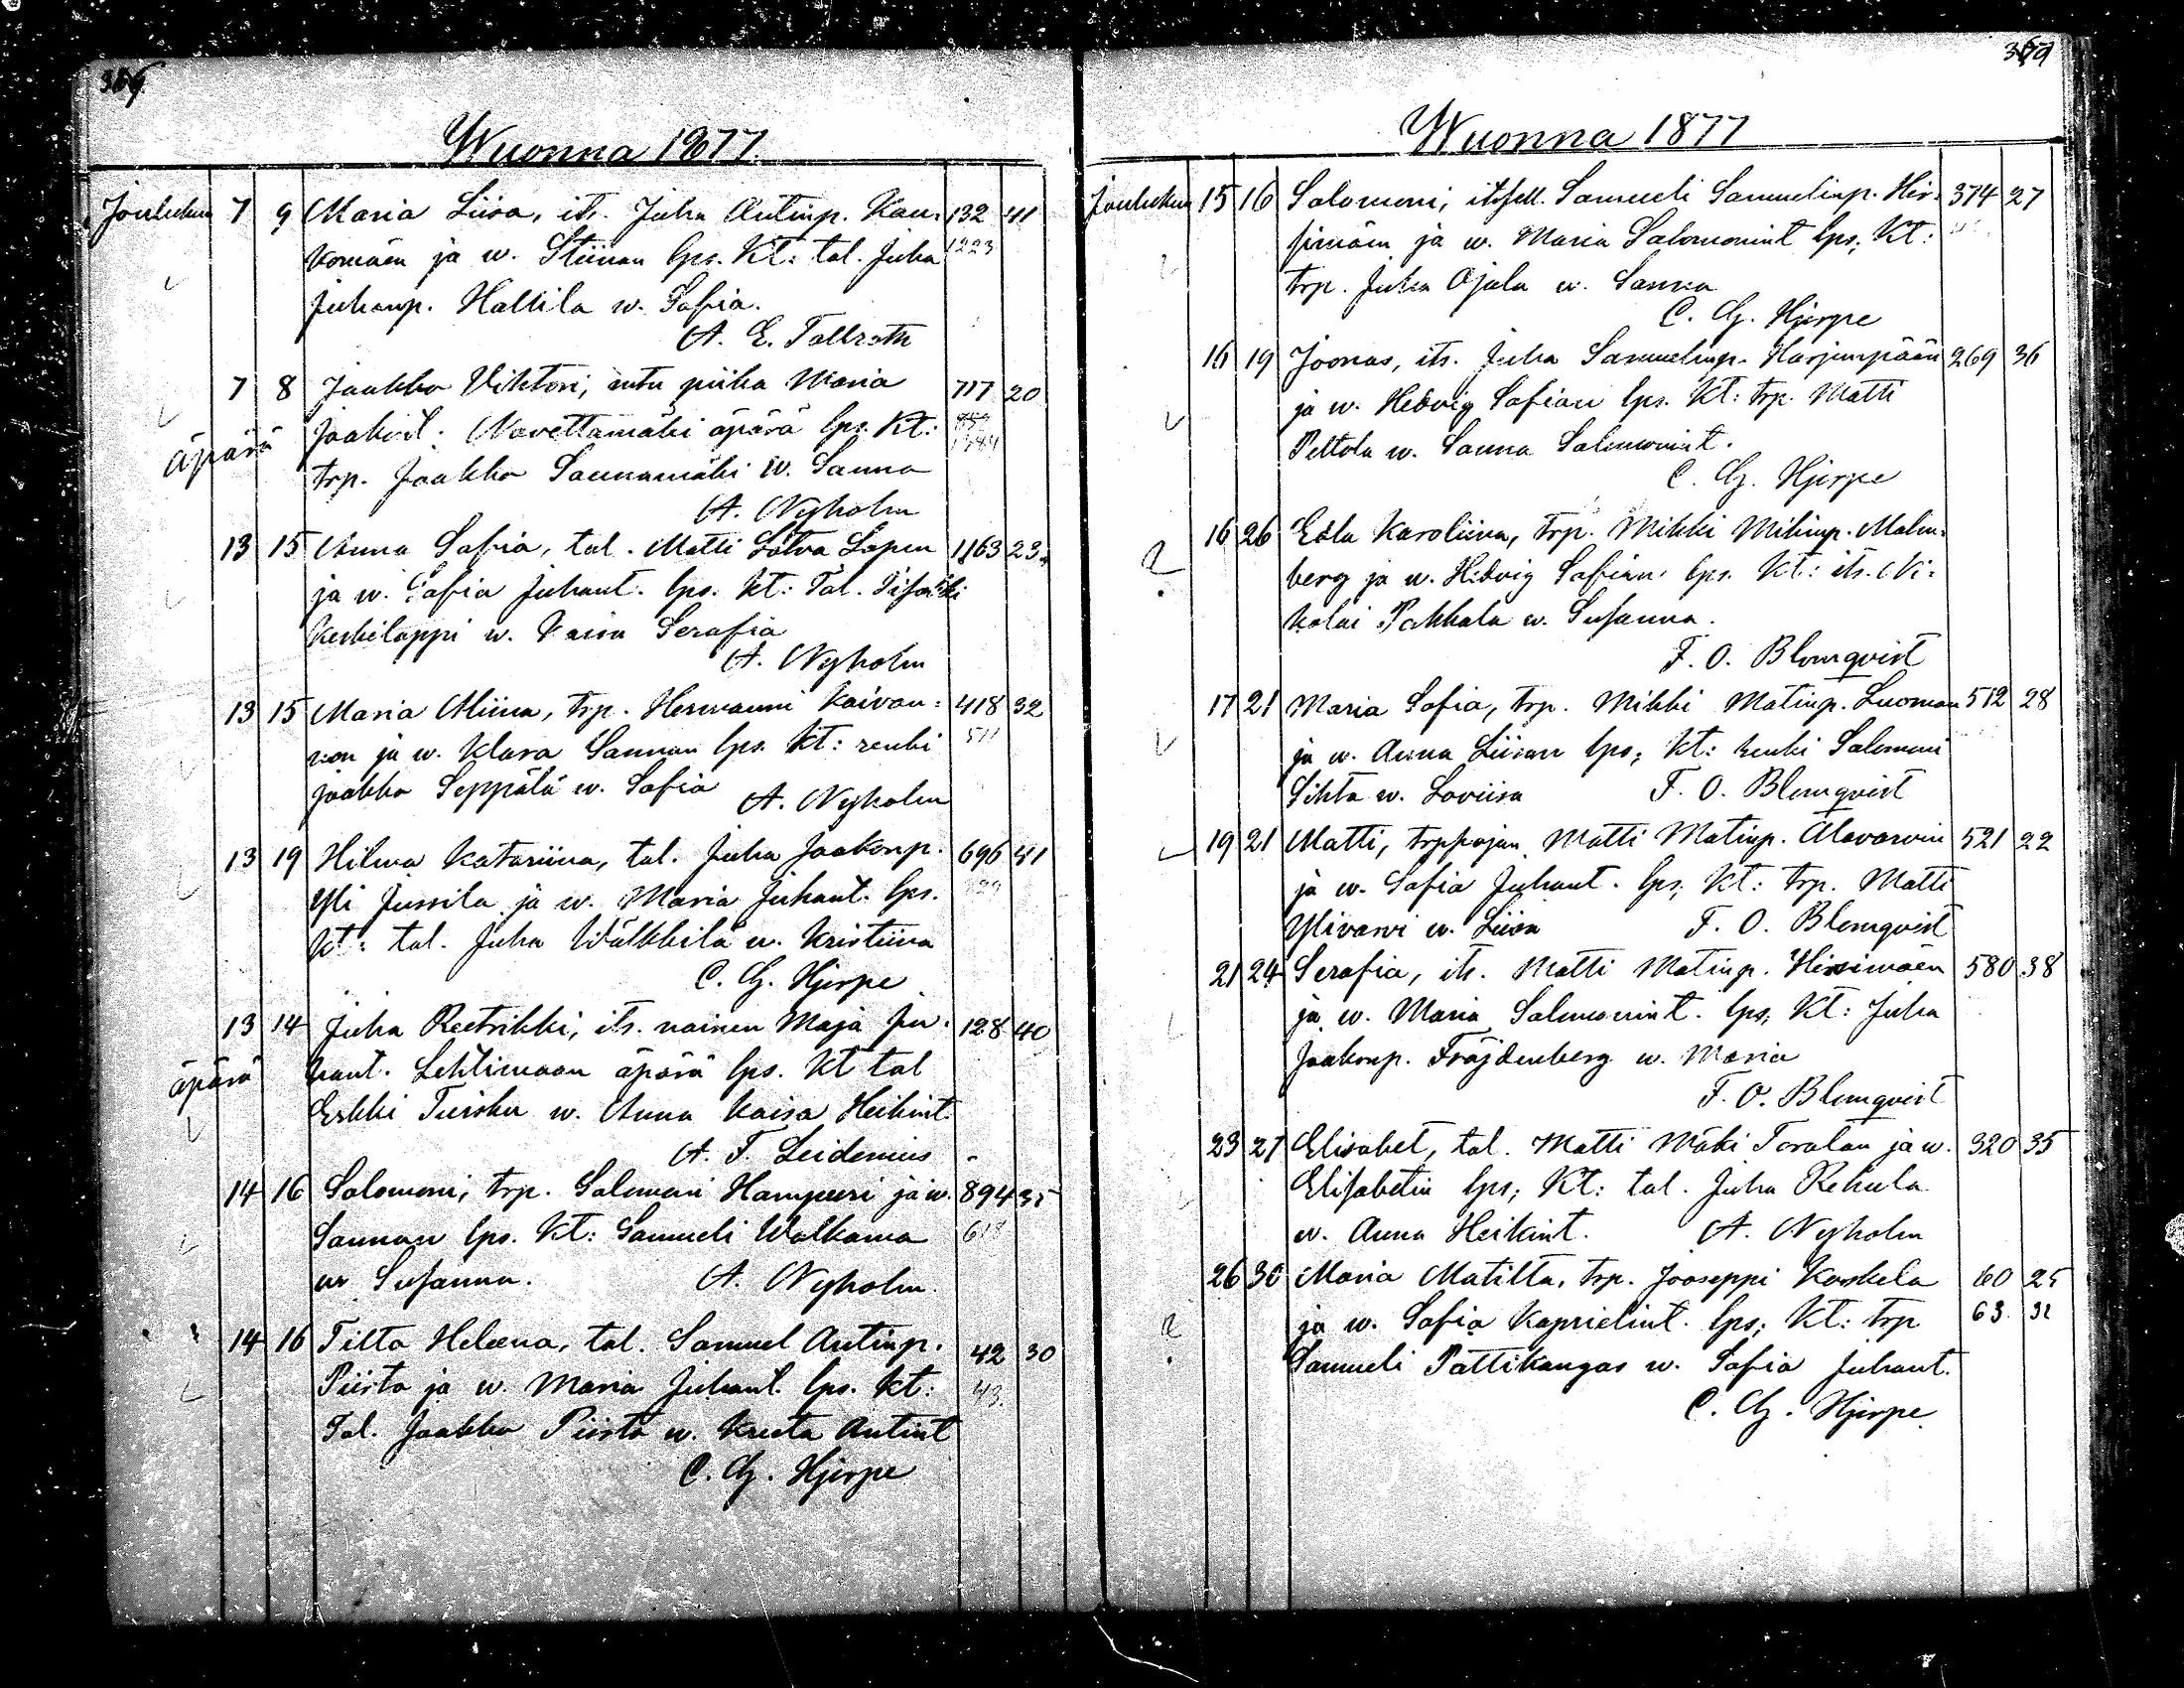 Wuonna 1877.
Joulukuu 7 9 Maria Liisa, its. Juha Antinp. Kau- 132 41
komäen ja w. Stiinan lps. Kt: tal. Juha 1223
Juhanp. Hallila w. Sofia.
A. E. Tallroth
7 8 Jaakko Vihtori, entu piika Maria 717 20
äpärä Jaakost. Navettamäki äpärä lps. Kt:
trp. Jaakko Saunamäki w. Sanna
A. Nyholm
13 15 Anna Sofia, tal. Matti Latva Lapin 1163 23
ja w. Sofia Juhant. lps. Kt: Tal.
Keskilappi w. Kaisa Serafia
A. Nyholm
13 15 Maria Miina, trp. Hermanni Kaivan- 418 32
non ja w. Klara Sannan lps. Kt: renki 511
Jaakko Seppälä w. Sofia A. Nyholm
13 19 Hilma Katariina, tal. Juha Jaakonp. 696 41
Yli Jussila ja w. Maria Juhant. lps.
Kt: tal. Juha Wälkkilä w. Kristiina
C. G. Hjerpe
13 14 Juha Reetrikki, its. nainen Maja Ju- 128 40
äpärä hant. Lehtimaan äpärä lps. Kt tal
Erkki Tuisku w. Anna Kaisa Heikint.
A. F. Leidenius
14 16 Salomoni, trp. Salomoni Hampeeri ja w. 894 35
Sannan lps. Kt: Samueli Walkama
w Susanna. A. Nyholm.
14 16 Tilta Heleena, tal. Samuel Antinp. 42 30
Piirto ja w. Maria Juhant. lps. Kt: 43.
Tal. Jaakko Piirto w. Kreeta Antint
C. G. Hjerpe
Wuonna 1877
Joulukuu 15 16 Salomoni, itsell. Samueli Samuelinp. Hir- 374 27
simäen ja w. Maria Salomonint lps; Kt:
trp. Juha Ojala w. Sanna
C. G. Hjerpe
16 19 Joonas, its. Juha Samuelinp. Harjunpään 269 36
ja w. Hedvig Sofian lps. Kt: trp. Matti
Peltola w. Sanna Salomonint.
C. G. Hjerpe
16 26 Eela Karoliina, trp. Mikki Mikinp. Malm-
berg ja w. Hedvig Sofian lps. Kt: its. Ni-
kolai Pakkala w. Susanna.
F. O. Blomqvist
17 21 Maria Sofia, trp. Mikki Matinp. Luoman 512 28
ja w. Anna Liisan lps; Kt: renki Salomoni
Sihta w. Loviisa F. O. Blomqvist
19 21 Matti, trppojan Matti Matinp. Alavarvin 521 22
ja w. Sofia Juhant. lps; Kt: trp. Matti
Ylivarvi w. Liisa F. O. Blomqvist
21 24 Serafia, its. Matti Matinp. Hirsimäen 580 38
ja w. Maria Salomonint. lps; Kt: Juha
Jaakonp. Fräjdenberg w. Maria
F. O. Blomqvist
23 27 Elisabet, tal. Matti Mäki Toratan ja w. 320 35
Elisabetin lps; Kt: tal. Juha Rehula
w. Anna Heikint. A. Nyholm
26 30 Maria Matilta, trp. Jooseppi Koskela 60 25
ja w. Sofia Kaprielint. lps; Kt: trp 63. 32
Samueli Pättikangas w. Sofia Juhant.
C. G. Hjerpe